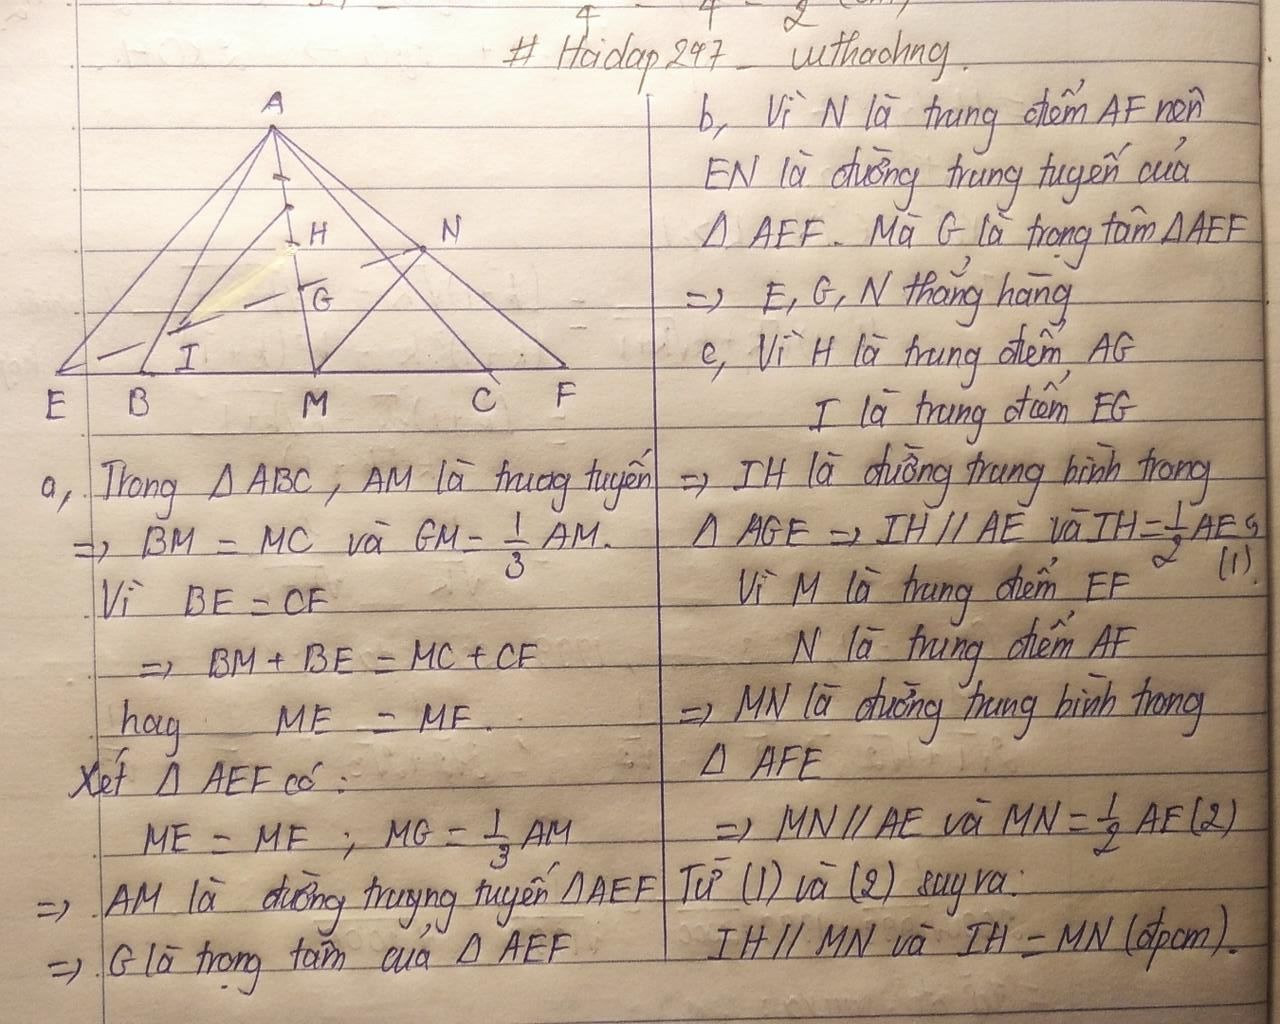 # Hoidap247_ uuthaohng.
A
H
N
G
I
E B M C F
a, Trong Δ ABC, AM là trung tuyến
=> BM = MC và GM = 1/3 AM.
Vì BE = CF
=> BM + BE = MC + CF
hay ME = MF.
Xét Δ AEF có:
ME = MF ; MG = 1/3 AM
=> AM là đường trung tuyến Δ AEF
=> G là trọng tâm của Δ AEF
b, Vì N là trung điểm AF nên
EN là đường trung tuyến của
Δ AEF. Mà G là trọng tâm Δ AEF
=> E, G, N thẳng hàng
c, Vì H là trung điểm AG
I là trung điểm EG
=> IH là đường trung bình trong
Δ AGE => IH // AE và IH = 1/2 AE
(1)
Vì M là trung điểm EF
N là trung điểm AF
=> MN là đường trung bình trong
Δ AFE
=> MN // AE và MN = 1/2 AE (2)
Từ (1) và (2) suy ra:
IH // MN và IH = MN (đpcm).